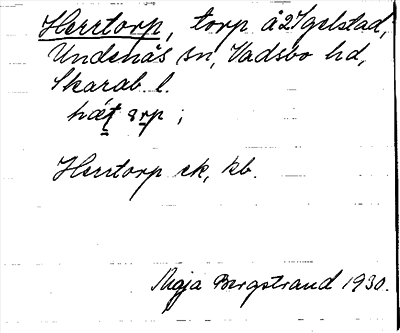 Herrtorp, torp å 2 Igelstad,
Undenäs sn, Vadsbo hd,
Skarab. l.
hæ̀ṭ ørp ;
Herrtorp ek, kb.
Maja Bergstrand 1930.